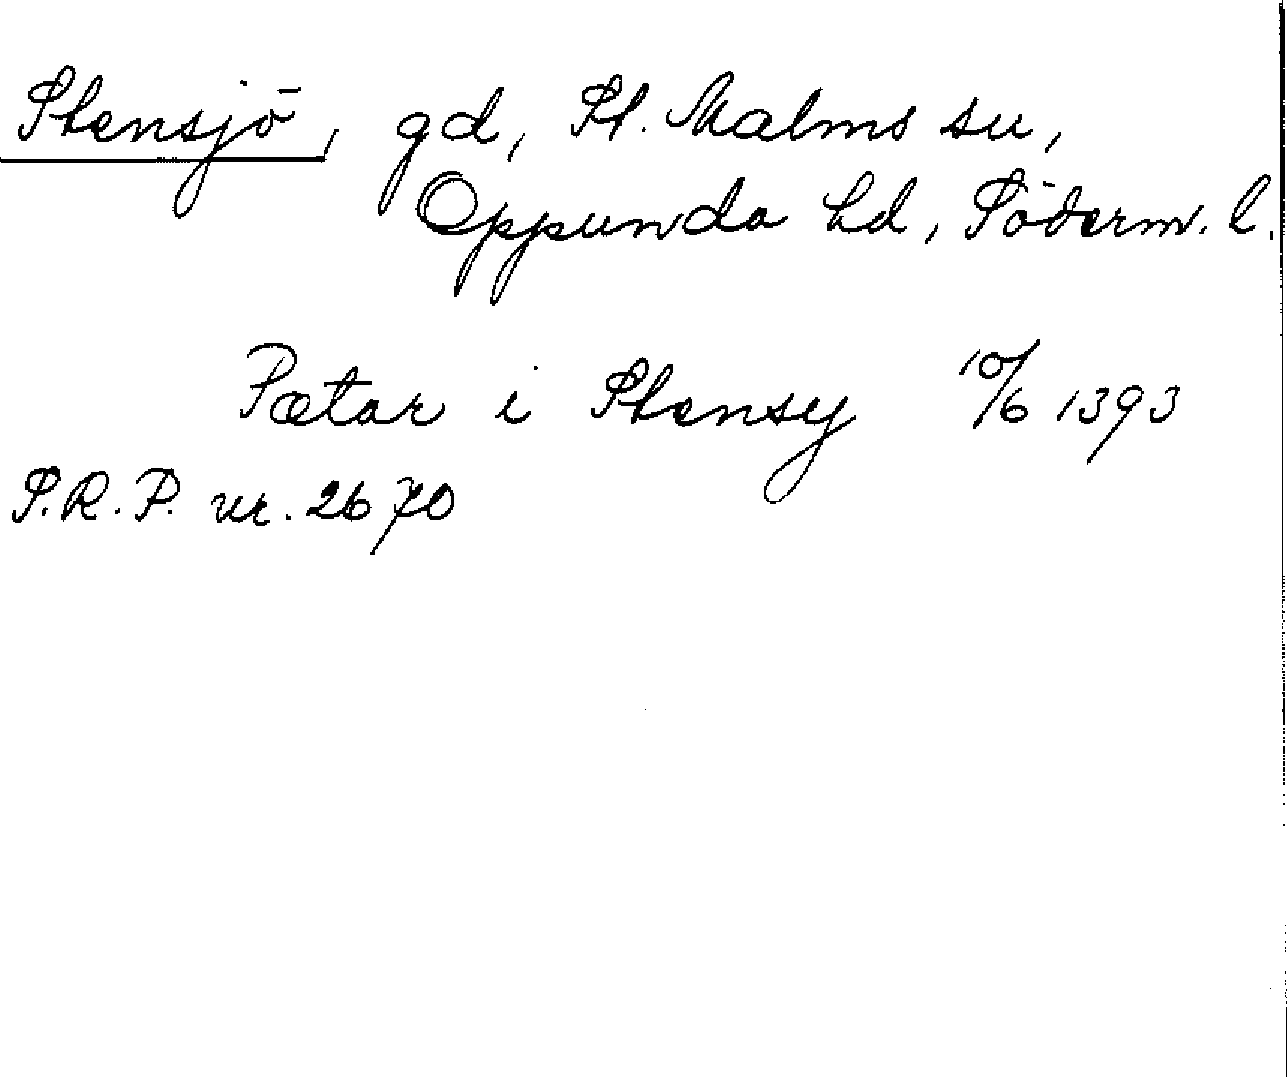 Stensjö, gd, St. Malms sn,
Oppunda hd, Söderm. l.
Pætar i Stensy 10/6 1393
S.R.P. nr. 2670